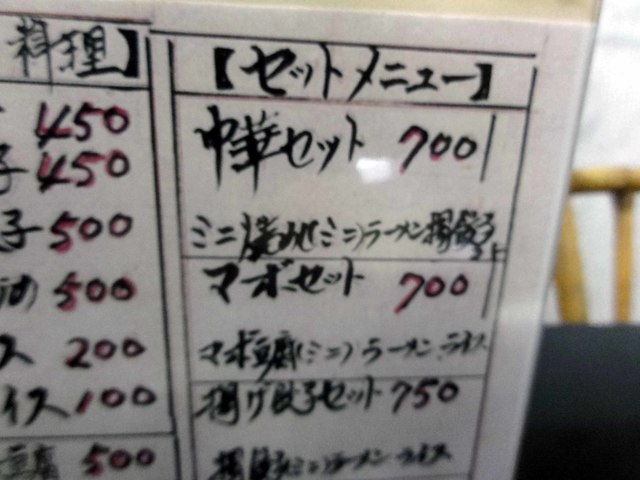 料理】
450
子 450
子 500
500
ス 200
イス 100
500
【セットメニュー】
中華セット 700
ミニ焼めし(ミニ)ラーメン揚餃子
マーボーセット 700
マーボ豆腐(ミニ)ラーメン ライス
揚げ餃子セット 750
揚餃子ミニラーメン ライス